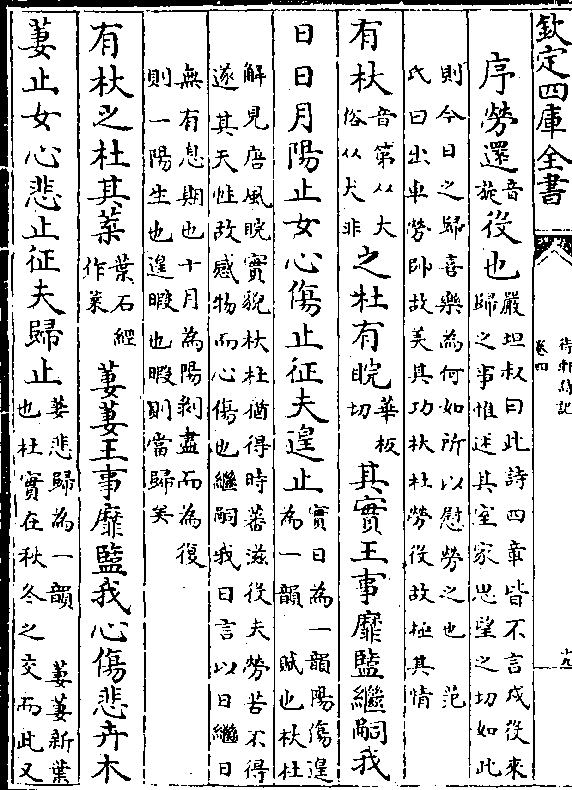 欽定四庫全書
待軒詩記
卷四
十九
序勞還音旋役也嚴坦叔曰此詩四章皆不言戍役來
歸之事惟述其室家思望之切如此
則今日之歸喜樂為何如所以慰勞之也 范
氏曰出車勞帥故美其功杕杜勞役故極其情
有杕音第从大
俗从犬非之杜有睆華板
切其實王事靡盬繼嗣我
日日月陽止女心傷止征夫遑止實日為一韻陽傷遑
為一韻 賦也杕杜
解見唐風睆實貌杕杜猶得時蕃滋役夫勞苦不得
遂其天性故感物而心傷也繼嗣我日言以日繼日
無有息期也十月為陽剥盡而為復
則一陽生也遑暇也暇則當歸矣
有杕之杜其葉葉石經
作𦯧萋萋王事靡盬我心傷悲卉木
萋止女心悲止征夫歸止萋悲歸為一韻 萋萋新葉
也杜實在秋冬之交而此又